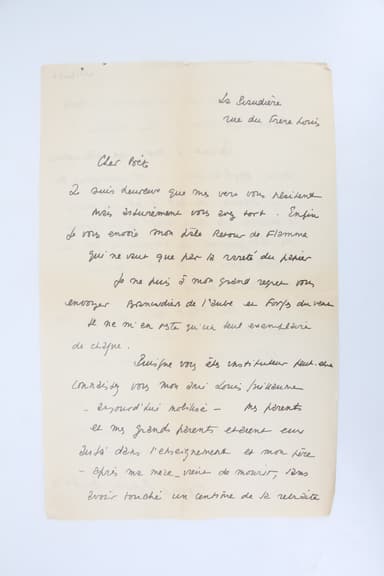 La Beaudière
rue du Frère Louis
Cher Poète
Je suis heureux que mes vers vous
Mais assurément vous avez tort. Enfin
Je vous envoie mon pâle Retour de Flamme
qui ne vaut que par la rareté du papier
Je ne puis à mon grand regret vous
envoyer Brancardiers de l'aube et Forges du vent
Il ne m'en reste qu'un seul exemplaire
de chaque.
Puisque vous êtes instituteur peut-être
connaissez vous mon ami Louis Guillaume
- aujourd'hui mobilisé - Mes parents
et mes grands parents étaient eux
aussi dans l'enseignement et mon père
- après ma mère - vient de mourir, sans
avoir touché un centime de sa retraite